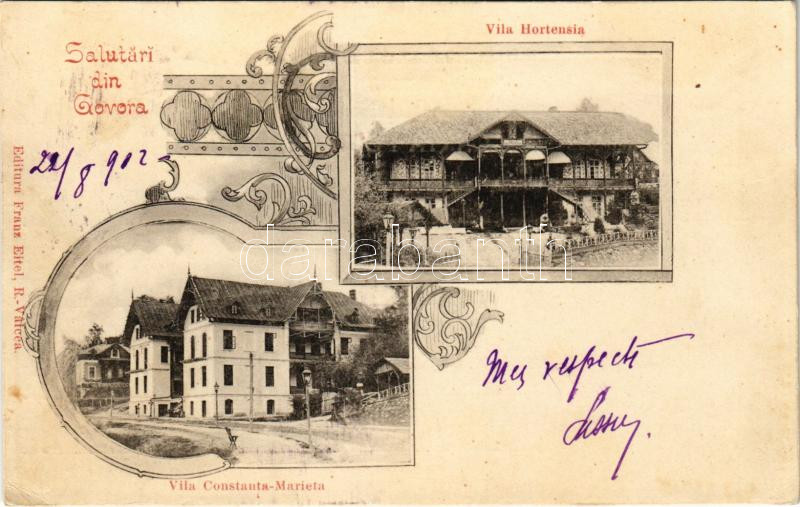 Vila Hortensia
Salutări
din
Govora
22/8 902
Editura Franz Eitel, R.-Vâlcea.
darabanth
Mes respects
Vila Constanța-Marieta